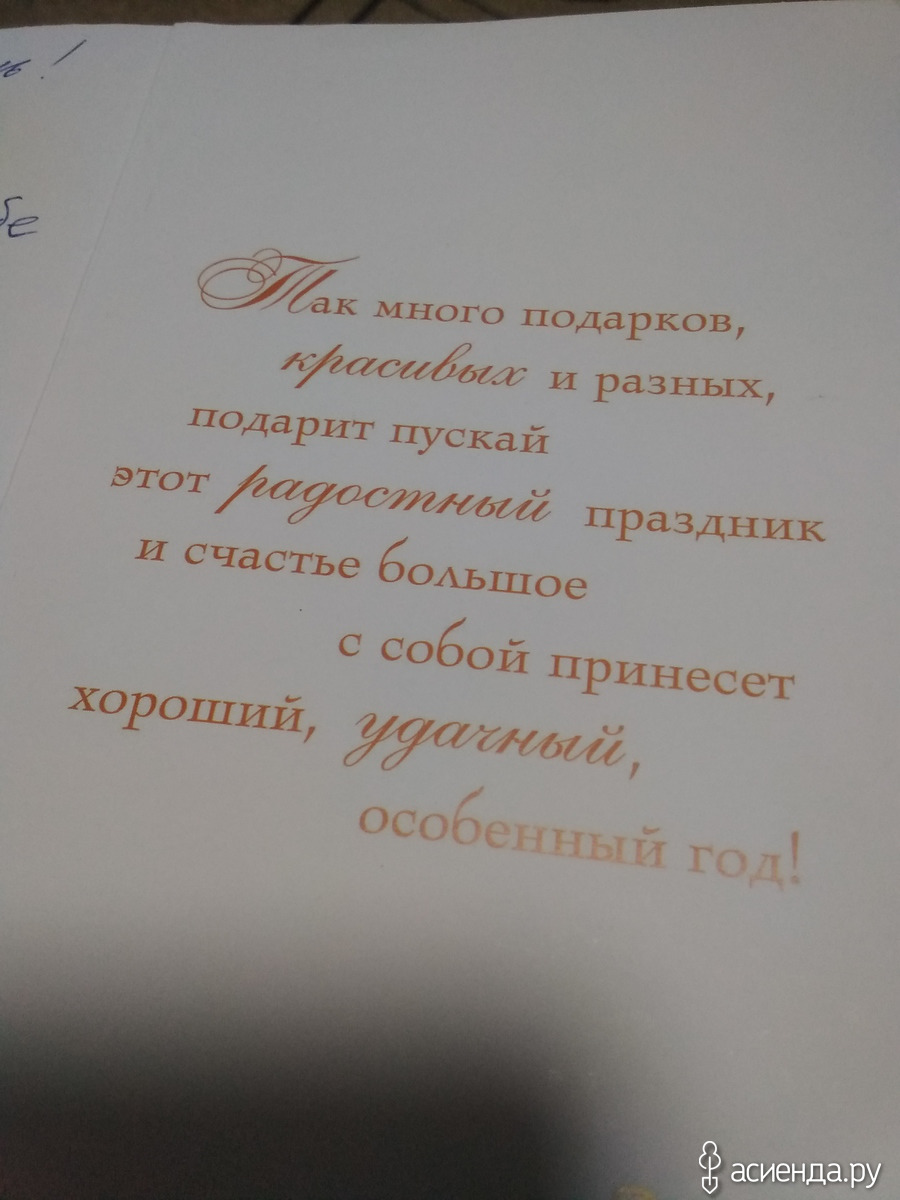 Так много подарков,
красивых и разных,
подарит пускай
этот радостный праздник
и счастье большое
с собой принесет
хороший, удачный,
особенный год!
асиенда.ру